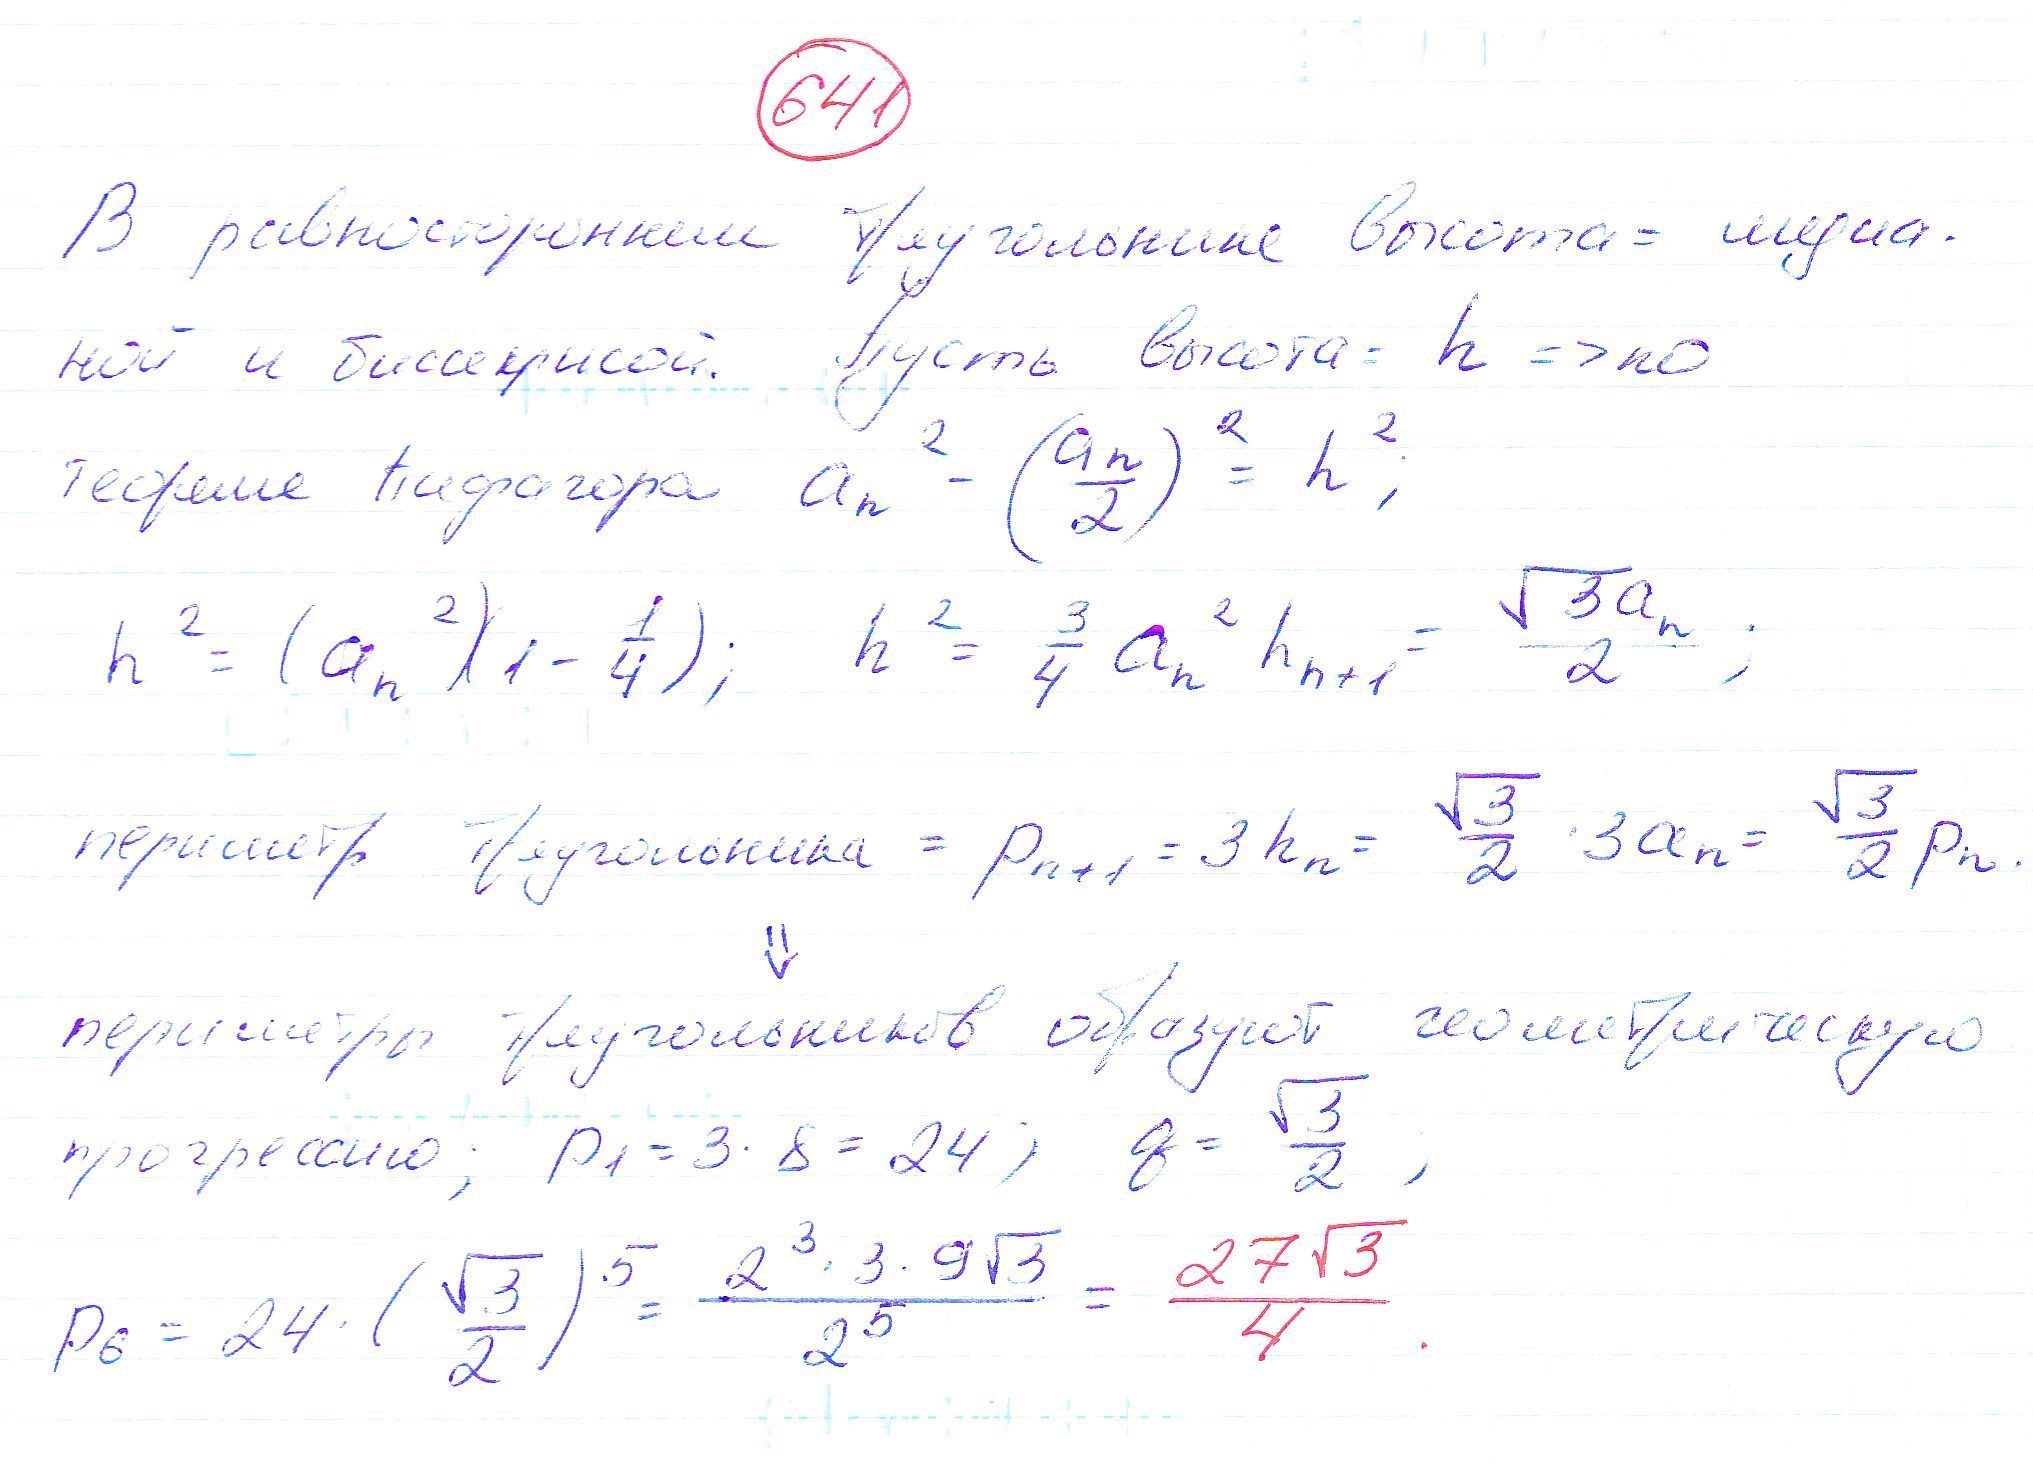 641
В равностороннем треугольнике высота = медиа-
ной и биссектрисой. Пусть высота = h => по
теореме Пифагора aₙ² - (aₙ/2)² = h²;
h² = (aₙ²)(1 - 1/4); h² = 3/4 aₙ² hₙ₊₁ = √3aₙ/2;
периметр треугольника = pₙ₊₁ = 3hₙ = √3/2 · 3aₙ = √3/2 pₙ.
⇓
периметры треугольников образуют геометрическую
прогрессию; p₁ = 3 · 8 = 24; q = √3/2;
p₆ = 24 · (√3/2)⁵ = 2³ · 3 · 9√3 / 2⁵ = 27√3/4.